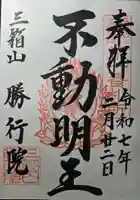 奉拝
令和七年
二月廿二日
不動明王
三箱山 勝行院